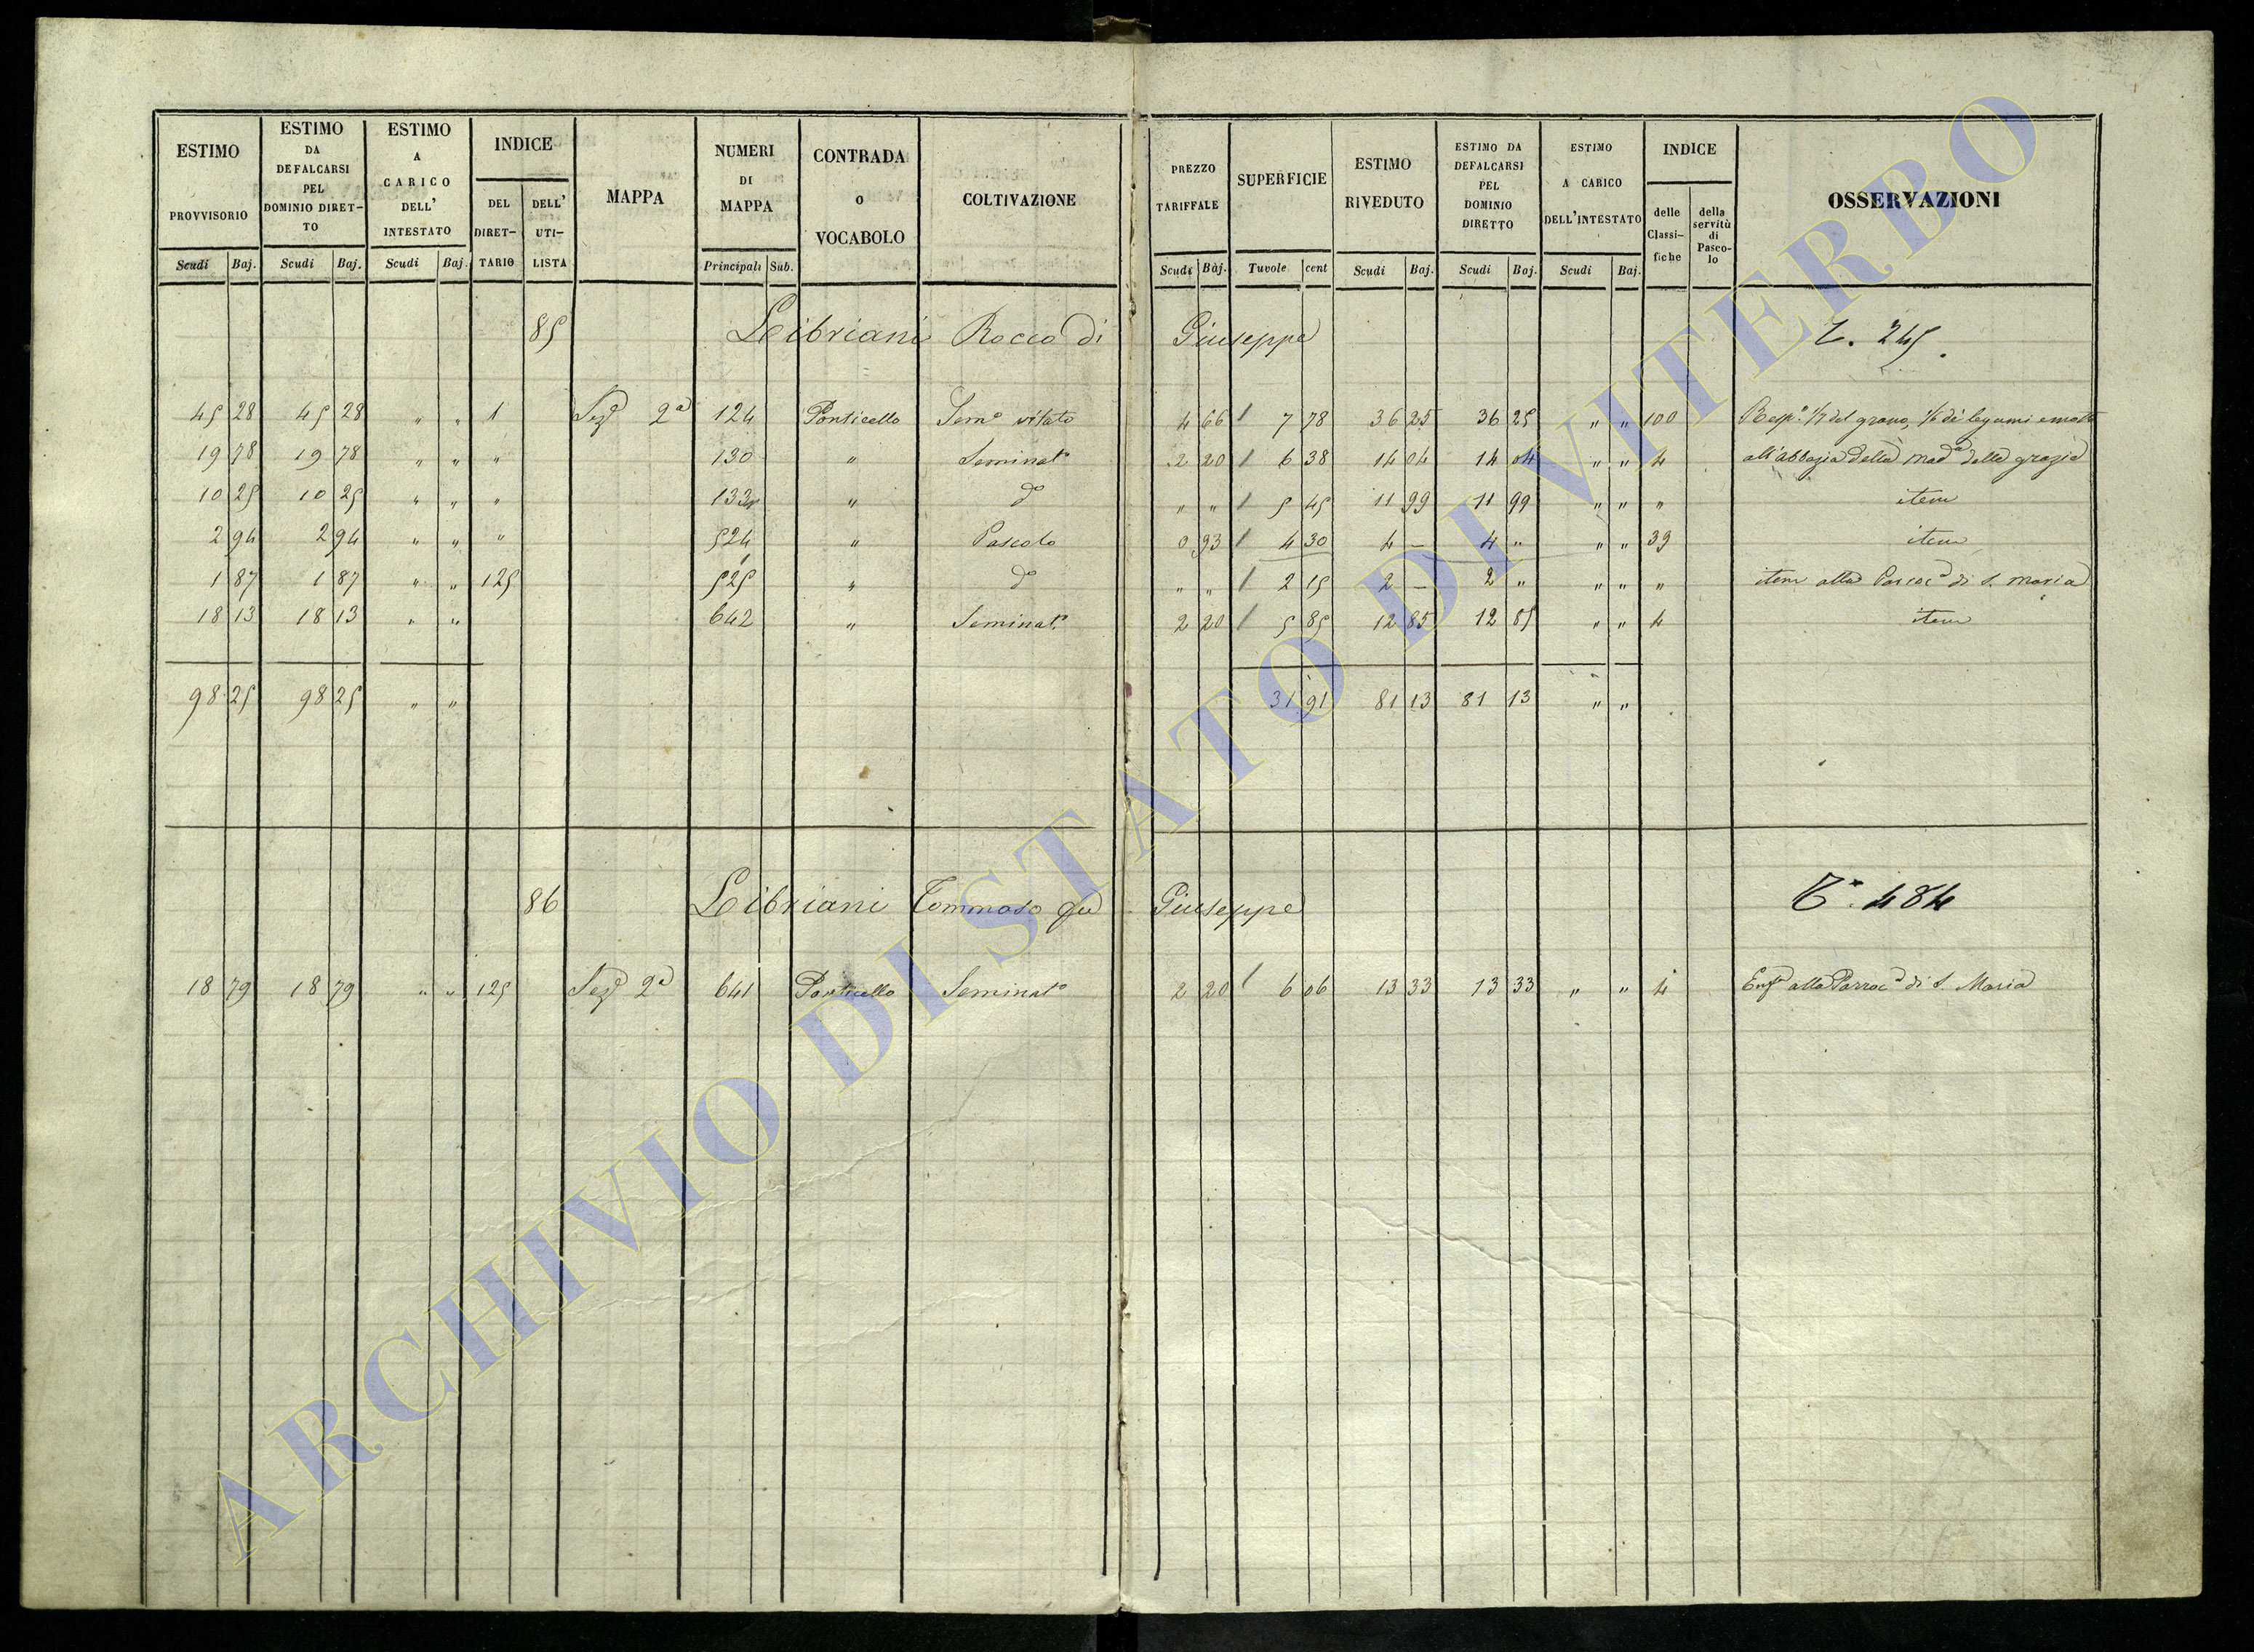 ESTIMO PROVVISORIO Scudi Baj. | ESTIMO DA DEFALCARSI PEL DOMINIO DIRET-TO Scudi Baj. | ESTIMO A CARICO DELL' INTESTATO Scudi Baj. | INDICE DEL DIRET-TARIO DELL' UTI-LISTA | MAPPA | NUMERI DI MAPPA Principali Sub. | CONTRADA O VOCABOLO | COLTIVAZIONE | PREZZO TARIFFALE Scudi Baj. | SUPERFICIE Tuvole cent | ESTIMO RIVEDUTO Scudi Baj. | ESTIMO DA DEFALCARSI PEL DOMINIO DIRETTO Scudi Baj. | ESTIMO A CARICO DELL'INTESTATO Scudi Baj. | INDICE delle Classi-fiche della servitù di Pasco-lo | OSSERVAZIONI
85 Libriani Rocco di Giuseppe 245.
45 28 45 28 " " 1 Sez. 2a 124 Ponticello Sem.o vitato 4 66 / 7 78 36 25 36 25 " " 100 Resp.e 1/7 del grano, 1/6 di legumi e mosto
19 78 19 78 " " " 130 " Seminat.o 2 20 / 6 38 14 04 14 04 " " 4 all'abbazia della Mad.a delle grazie
10 25 10 25 " " " 133 " d.o " " / 5 45 11 99 11 99 " " " item
2 94 2 94 " " " 524 " Pascolo 0 93 / 4 30 4 — 4 " " " 39 item
1 87 1 87 " " 125 525 " d.o " " / 2 15 2 — 2 " " " " item alla Parroc.a di S. Maria
18 13 18 13 " " 642 " Seminat.o 2 20 / 5 85 12 85 12 85 " " 4 item
98 25 98 25 " " 31 91 81 13 81 13 " "
86 Libriani Tommaso qu Giuseppe 484
18 79 18 79 " " 125 Sez. 2a 641 Ponticello Seminat.o 2 20 / 6 06 13 33 13 33 " " 4 Enf.a alla Parroc.a di S. Maria
ARCHIVIO DI STATO DI VITERBO